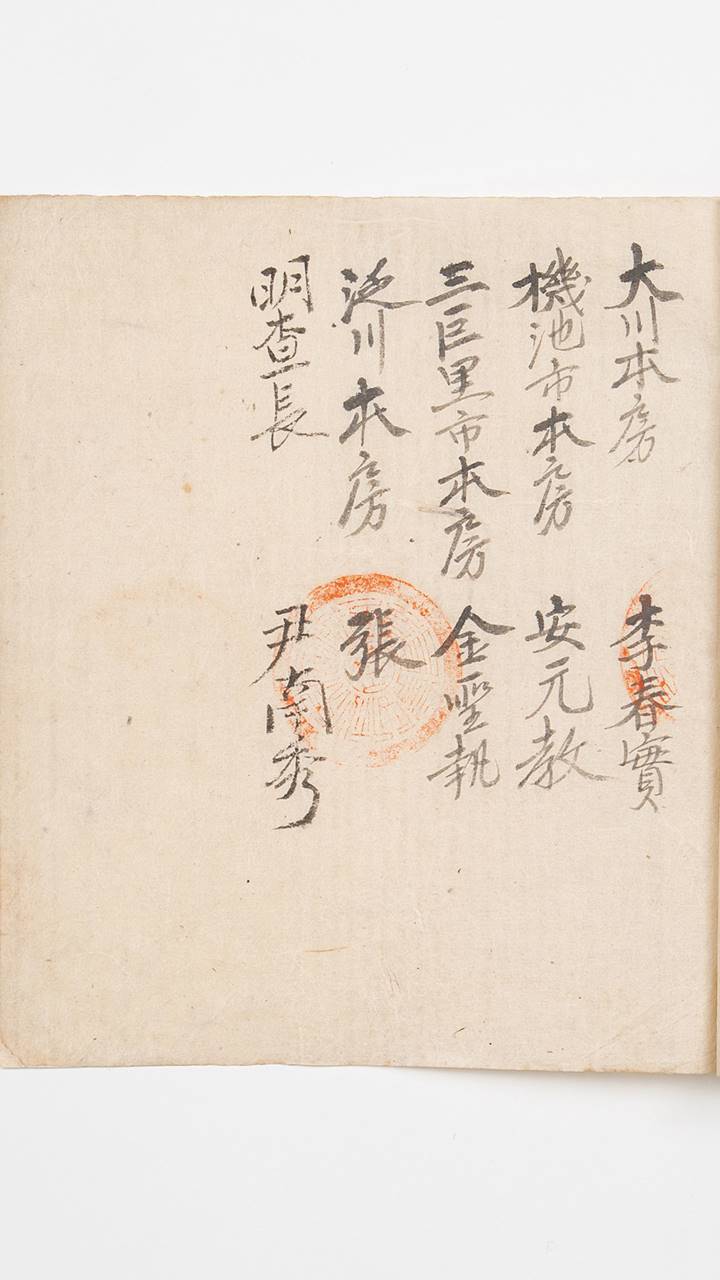 大川本房 李春實
機池市本房 安元教
三巨里市本房 金聖執
泛川本房 張
明查長 尹南秀